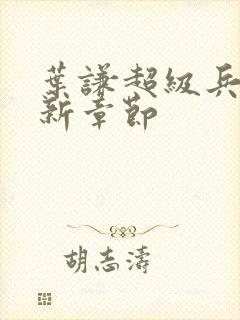 葉謙超級兵
新章節
胡志濤